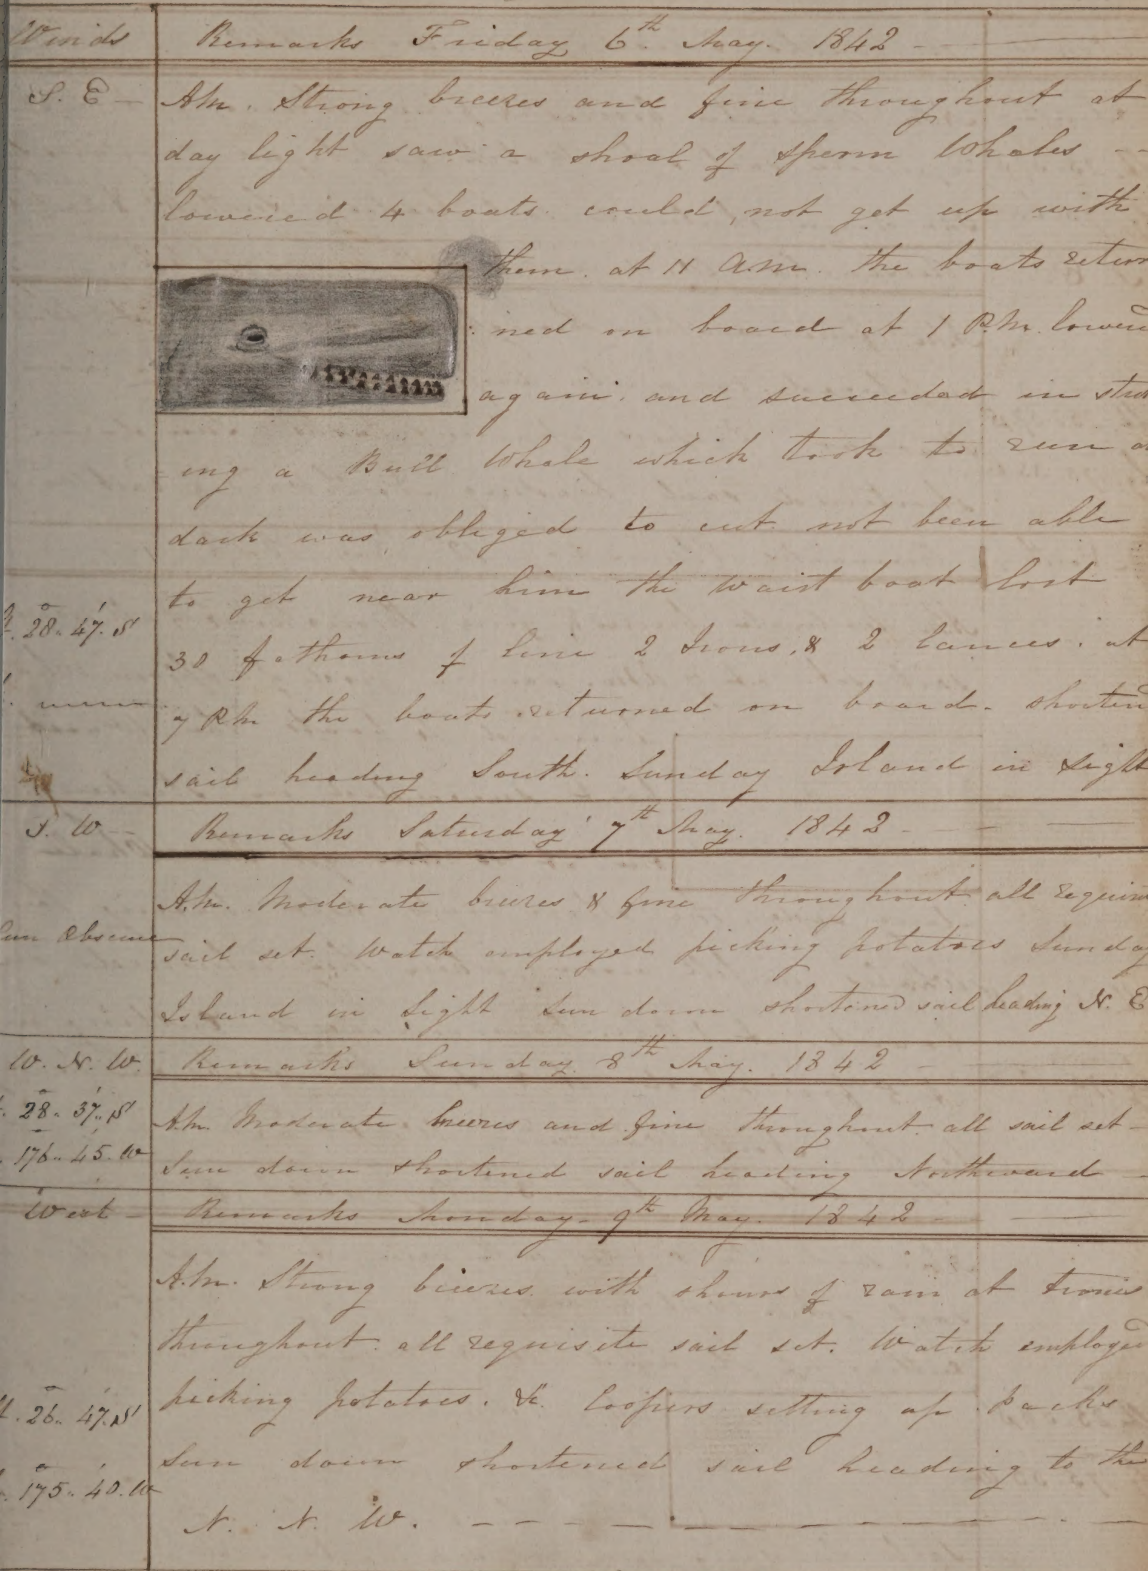 Winds Remarks Friday 6th May. 1842
S. E A.M. Strong breezes and fine throughout at
day light saw a shoal of Sperm Whales
lowered 4 boats. could not get up with
them. at 11 A.M. the boats retur
:ned on board at 1 P.M. lowered
again. and succeeded in
ing a Bull Whale which took to run
dark was obliged to cut not been able
to get near him the Waist boat lost
28.. 47. S
30 fathoms of line 2 Irons, & 2 lances. at
7 P.M. the boats returned on board. shorten
sail heading South. Sunday Island in Sight
S. W Remarks Saturday 7th May. 1842
A.M. Moderate breezes & fine throughout all
Sun Obscure sail set. Watch employed picking potatoes Sunday
Island in Sight Sun down shortened sail heading N. E
W. N. W. Remarks Sunday 8th May. 1842
28.. 37.. S A.M. Moderate breezes and fine throughout all sail set
176.. 45. W Sun down shortened sail heading Northward
West Remarks Monday 9th May. 1842
A.M. Strong breezes with showrs of rain at times
throughout. all requisite sail set. Watch employed
26.. 47. S picking potatoes. &c. Coopers setting up Packs
175.. 40. W Sun down shortened sail heading to the
N. N. W.